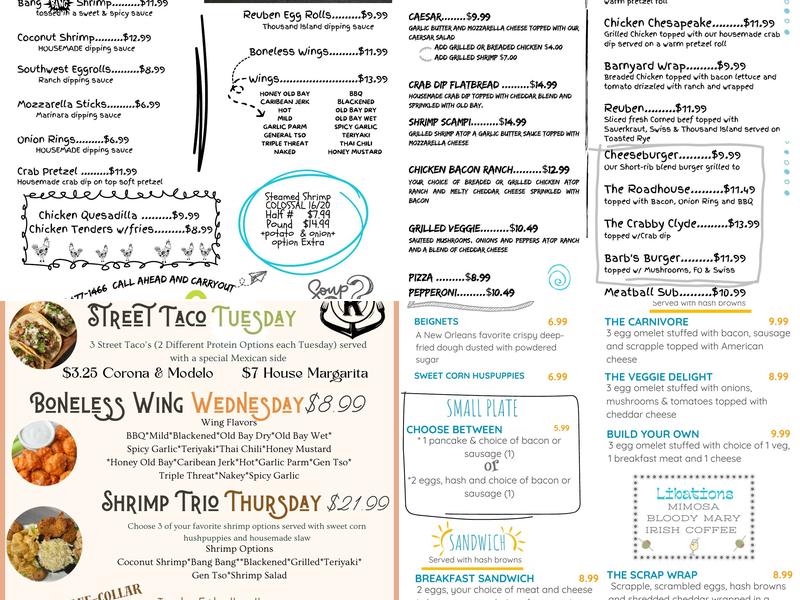 Bang Bang Shrimp......$11.99
tossed in a sweet & spicy sauce
Coconut Shrimp.......$12.99
HOUSEMADE dipping sauce
Southwest Eggrolls.......$8.99
Ranch dipping sauce
Mozzarella Sticks.......$6.99
Marinara dipping sauce
Onion Rings........$6.99
HOUSEMADE dipping sauce
Crab Pretzel .......$11.99
Housemade crab dip on top soft pretzel
Chicken Quesadilla .......$9.99
Chicken Tenders w/fries.......$8.99
477-1466 CALL AHEAD AND CARRYOUT
Reuben Egg Rolls......$9.99
Thousand Island dipping sauce
Boneless Wings.......$11.99
Wings...............$13.99
HONEY OLD BAY BBQ
CARIBEAN JERK BLACKENED
HOT OLD BAY DRY
MILD OLD BAY WET
GARLIC PARM SPICY GARLIC
GENERAL TSO TERIYAKI
TRIPLE THREAT THAI CHILI
NAKED HONEY MUSTARD
Steamed Shrimp
COLOSSAL 16/20
Half # $7.99
Pound $14.99
+potato & onion+
option Extra
Soup
CAESAR.......$9.99
GARLIC BUTTER AND MOZZARELLA CHEESE TOPPED WITH OUR
CAERSAR SALAD
ADD GRILLED OR BREADED CHICKEN $4.00
ADD GRILLED SHRIMP $7.00
CRAB DIP FLATBREAD .......$14.99
HOUSEMADE CRAB DIP TOPPED WITH CHEDDAR BLEND AND
SPRINKLED WITH OLD BAY.
SHRIMP SCAMPI.......$14.99
GRILLED SHRIMP ATOP A GARLIC BUTTER SAUCE TOPPED WITH
MOZZARELLA CHEESE
CHICKEN BACON RANCH.......$12.99
YOUR CHOICE OF BREADED OR GRILLED CHICKEN ATOP
RANCH AND MELTY CHEDDAR CHEESE SPRINKLED WITH
BACON
GRILLED VEGGIE.......$10.49
SAUTEED MUSHROOMS, ONIONS AND PEPPERS ATOP RANCH
AND A BLEND OF CHEESE.
PIZZA .......$8.99
PEPPERONI.......$10.49
warm pretzel roll
Chicken Chesapeake.......$11.99
Grilled Chicken topped with our housemade crab
dip served on a warm pretzel roll
Barnyard Wrap.......$9.99
Breaded Chicken topped with bacon lettuce and
tomato drizzled with ranch and wrapped
Reuben.......$11.99
Sliced fresh Corned beef topped with
Sauerkraut, Swiss & Thousand Island served on
Toasted Rye
Cheeseburger.......$9.99
Our Short-rib blend burger grilled to
The Roadhouse.......$11.49
topped with Bacon, Onion Ring and BBQ
The Crabby Clyde.......$13.99
topped w/Crab dip
Barb's Burger.......$11.99
topped w/ Mushrooms, FO & Swiss
Meatball Sub.......$10.99
STREET TACO TUESDAY
3 Street Taco's (2 Different Protein Options each Tuesday) served
with a special Mexican side
$3.25 Corona & Modelo $7 House Margarita
BONELESS WING WEDNESDAY $8.99
Wing Flavors
BBQ*Mild*Blackened*Old Bay Dry*Old Bay Wet*
Spicy Garlic*Teriyaki*Thai Chili*Honey Mustard
*Honey Old Bay*Caribean Jerk*Hot*Garlic Parm*Gen Tso*
Triple Threat*Nakey*Spicy Garlic
SHRIMP TRIO THURSDAY $21.99
Choose 3 of your favorite shrimp options served with sweet corn
hushpuppies and housemade slaw
Shrimp Options
Coconut Shrimp*Bang Bang**Blackened*Grilled*Teriyaki*
Gen Tso*Shrimp Salad
BEIGNETS 6.99
A New Orleans favorite crispy deep-
fried dough dusted with powdered
sugar
SWEET CORN HUSPUPPIES 6.99
SMALL PLATE
CHOOSE BETWEEN 5.99
* 1 pancake & choice of bacon or
sausage (1)
or
*2 eggs, hash and choice of bacon or
sausage (1)
SANDWICH
Served with hash browns
BREAKFAST SANDWICH 8.99
2 eggs, your choice of meat and cheese
Served with hash browns
THE CARNIVORE 9.99
3 egg omelet stuffed with bacon, sausage
and scrapple topped with American
cheese
THE VEGGIE DELIGHT 8.99
3 egg omelet stuffed with onions,
mushrooms & tomatoes topped with
cheddar cheese
BUILD YOUR OWN 9.99
3 egg omelet stuffed with choice of 1 veg,
1 breakfast meat and 1 cheese
Libations
MIMOSA
BLOODY MARY
IRISH COFFEE
THE SCRAP WRAP 8.99
Scrapple, scrambled eggs, hash browns
and shredded cheddar wrapped in a